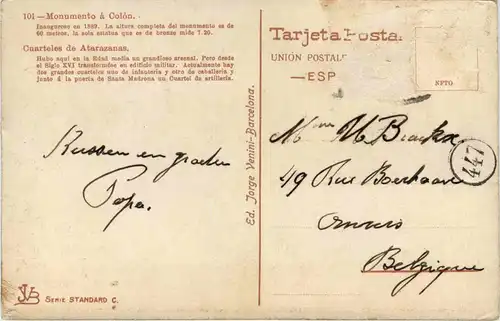 101—Monumento á Colón.
Inaugurose en 1889. La altura completa del monumento es de
60 metros, la sola estatua que es de bronze mide 7.20.
Cuarteles de Atarazanas.
Hubo aquí en la Edad media un grandioso arsenal. Pero desde
el Siglo XVI transformóse en edificio militar. Actualmente hay
dos grandes cuarteles uno de infantería y otro de caballería y
junto á la puerta de Santa Madrona un Cuartel de artillería.
Kussen en groeten
Papa.
JVB SERIE STANDARD C.
Ed. Jorge Venini-Barcelona.
Tarjeta Postal
UNIÓN POSTALE
—ESP
NFTO
447
Mme
49 Rue Boerhaave
Anvers
Belgique